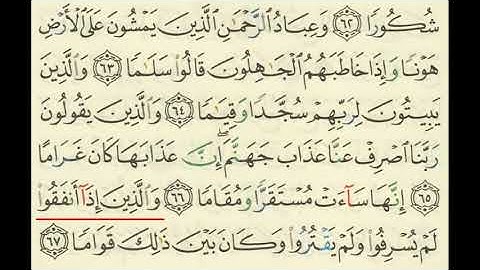 شُكُورًا ٦٢ وَعِبَادُ الرَّحْمَٰنِ الَّذِينَ يَمْشُونَ عَلَى الْأَرْضِ
هَوْنًا وَإِذَا خَاطَبَهُمُ الْجَاهِلُونَ قَالُوا سَلَامًا ٦٣ وَالَّذِينَ
يَبِيتُونَ لِرَبِّهِمْ سُجَّدًا وَقِيَامًا ٦٤ وَالَّذِينَ يَقُولُونَ
رَبَّنَا اصْرِفْ عَنَّا عَذَابَ جَهَنَّمَ ۖ إِنَّ عَذَابَهَا كَانَ غَرَامًا
٦٥ إِنَّهَا سَآءَتْ مُسْتَقَرًّا وَمُقَامًا ٦٦ وَالَّذِينَ إِذَآ أَنفَقُوا
لَمْ يُسْرِفُوا وَلَمْ يَقْتُرُوا وَكَانَ بَيْنَ ذَٰلِكَ قَوَامًا ٦٧